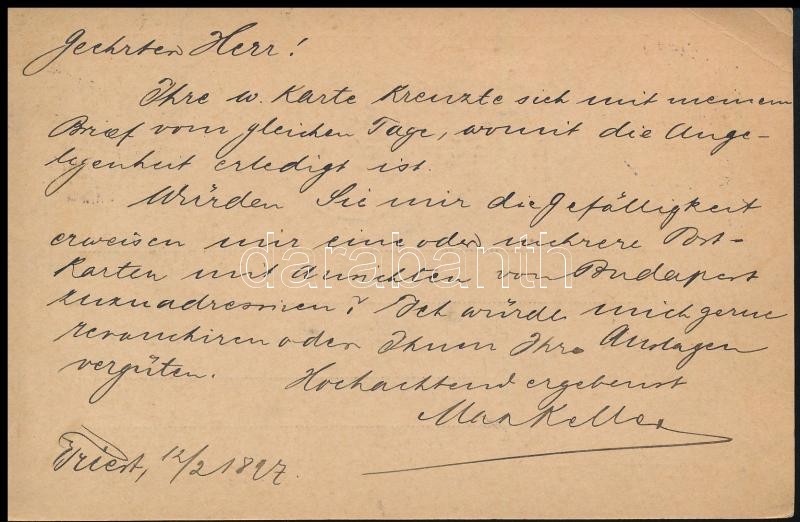 Geehrter Herr!
Ihre w. Karte kreuzte sich mit meinem
Brief vom gleichen Tage, womit die Ange-
legenheit erledigt ist.
Würden Sie mir die Gefälligkeit
erweisen mir eine oder mehrere Post-
karten mit Ansichten von Budapest
zuzuadressieren? Ich würde mich gerne
revanchiren oder Ihnen Ihre Auslagen
vergüten.
Hochachtend ergebenst
Max Keller
Triest, 12/2 1897.
darabanth